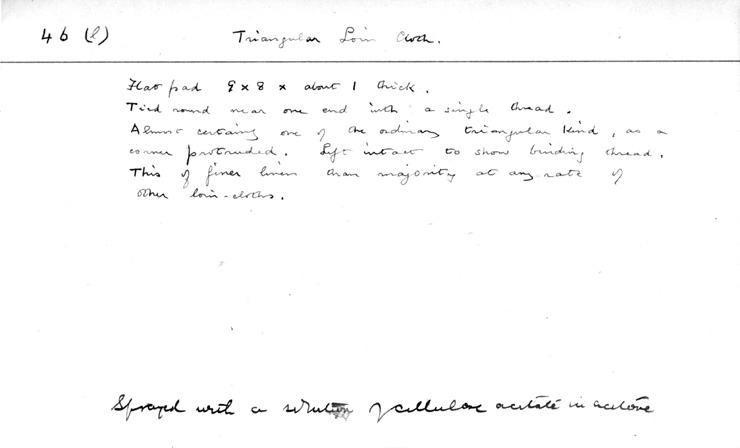 46 (l) Triangular Loin Cloth.
Flat pad 9 x 8 x about 1 thick.
Tied round near one end with a single thread.
Almost certainly one of the ordinary triangular kind, as a
corner protruded. Left intact to show binding thread.
This of finer linen than majority at any rate of
other loin-cloths.
Sprayed with a solution of cellulose acetate in acetone